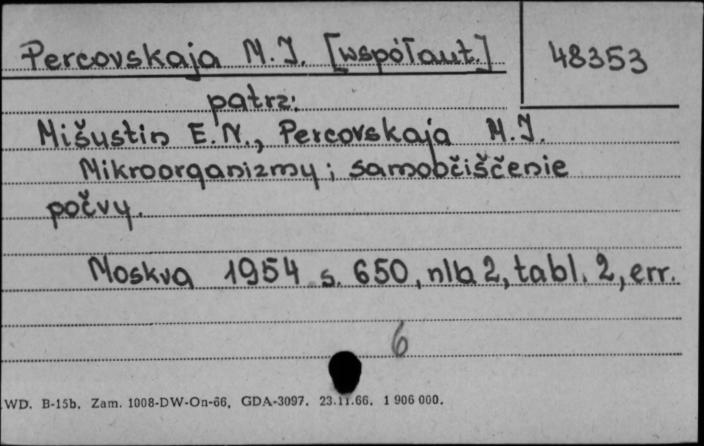 Percovskaja M.I. [współaut.]
48353
patrz:
Mišustin E.N., Percovskaja M.I.
Mikroorganizmy i samoobčiščenie
počvy.
Moskva 1954 s. 650, nlb 2, tabl. 2, err.
6
WD. B-15b. Zam. 1008-DW-On-66. GDA-3097. 23.11.66. 1 906 000.